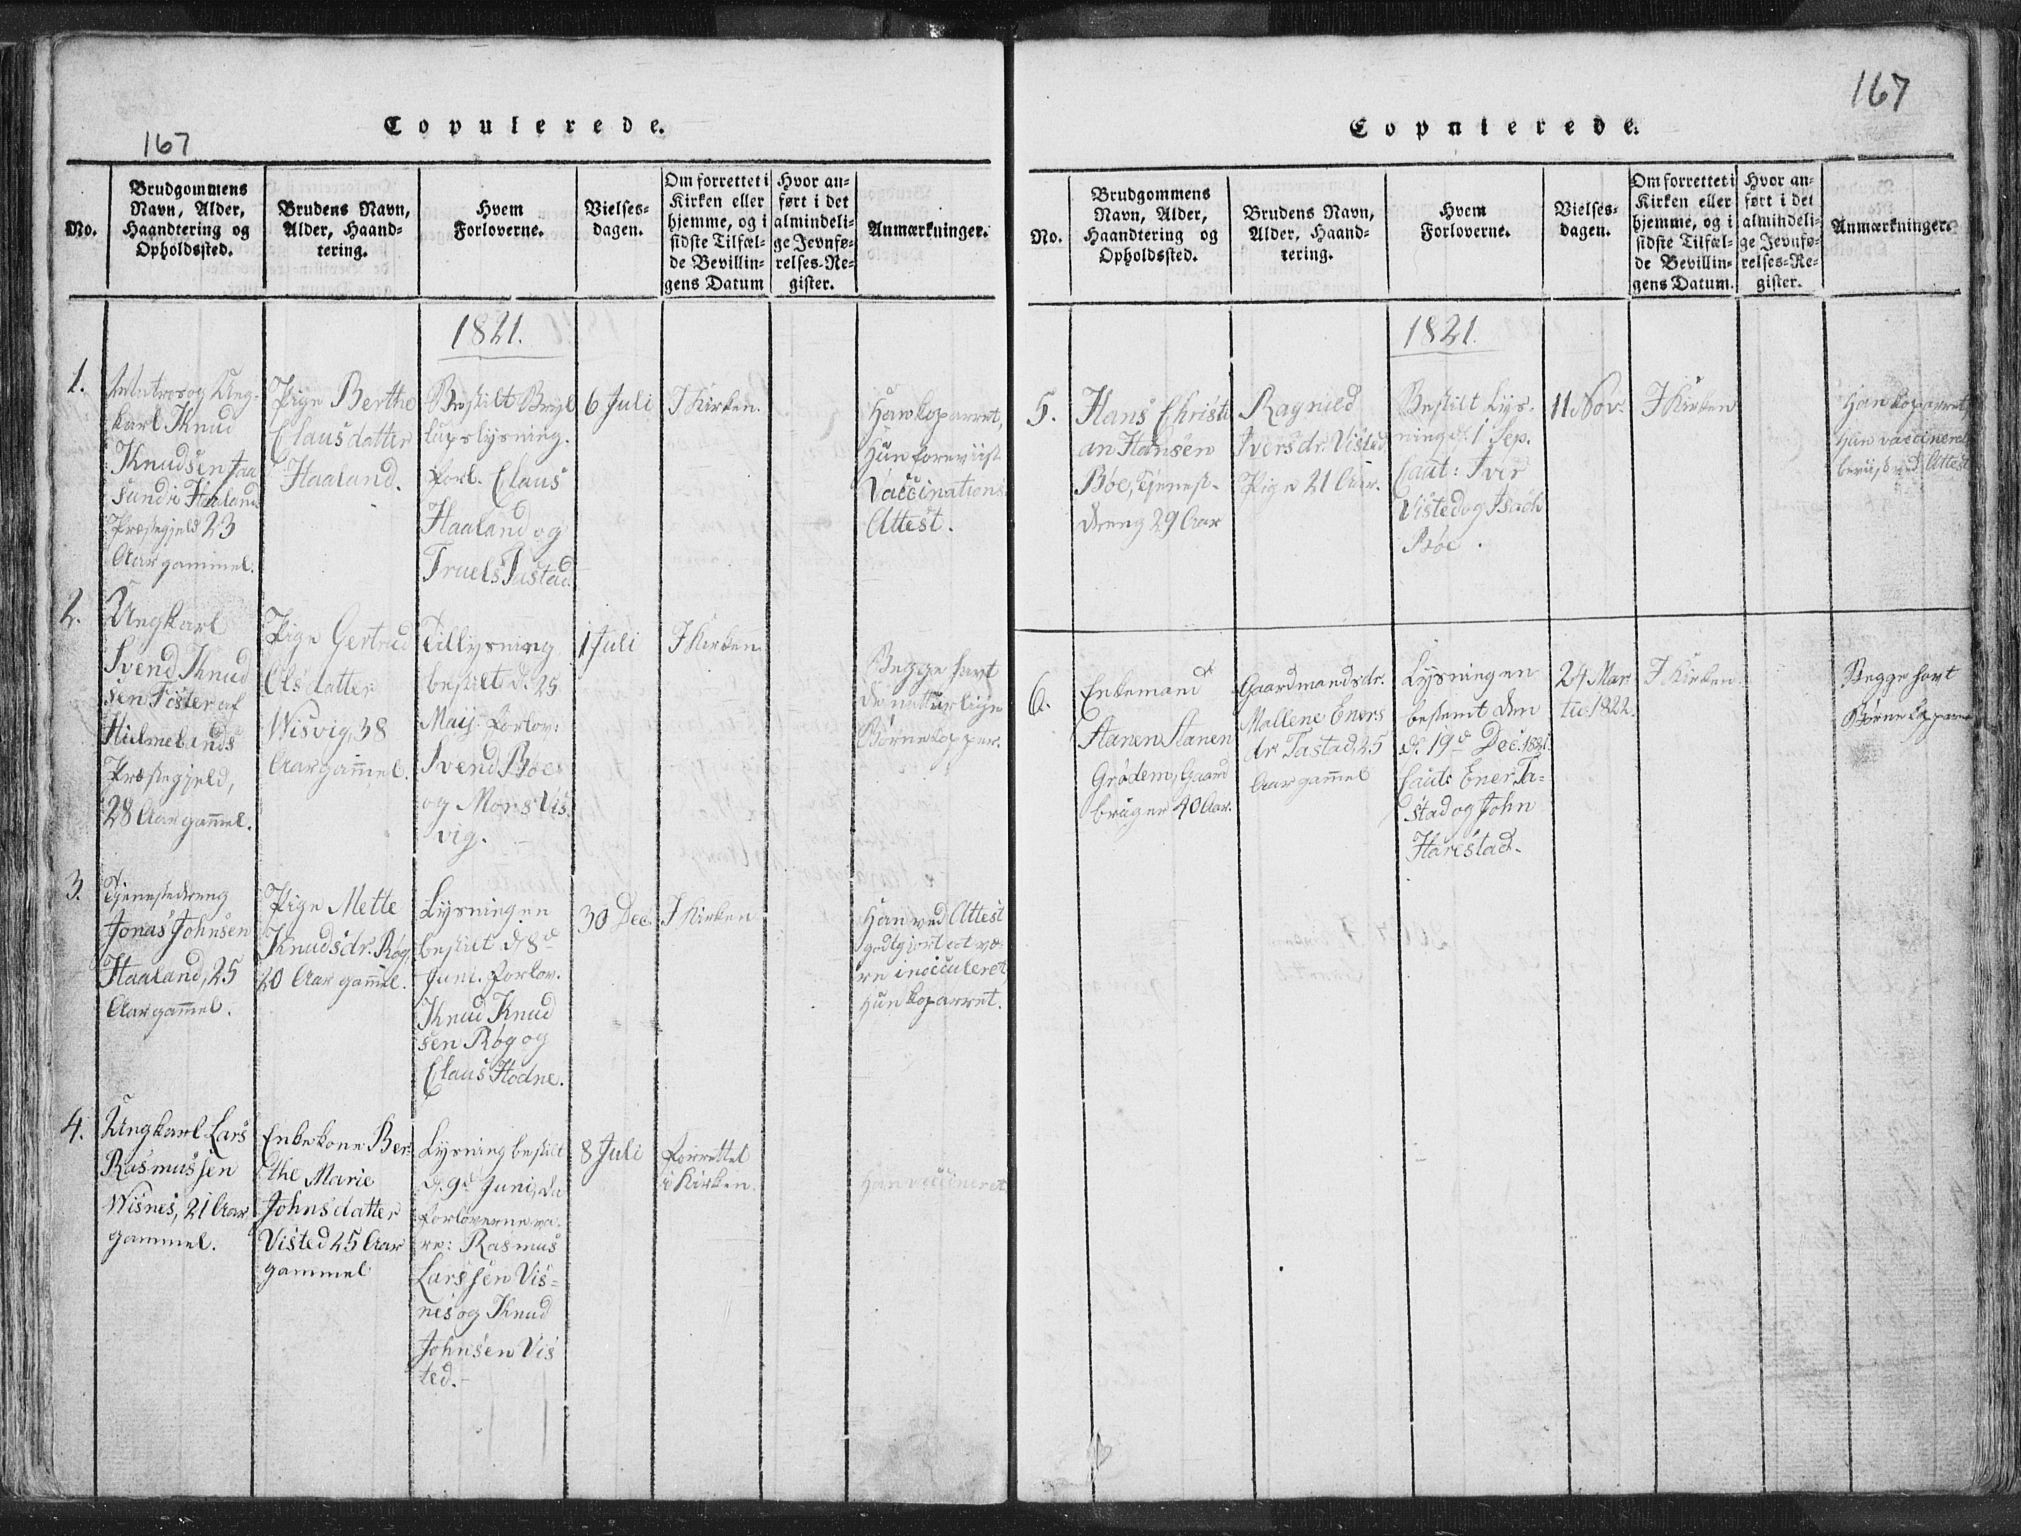 Copulerede.
167
No.
Brudgommens
Navn, Alder,
Haandtering og
Opholdssted.
Brudens Navn,
Alder, Haand-
tering.
Hvem
Forloverne.
Vielses-
dagen.
Om forrettet i
Kirken eller
hjemme, og i
sidste Tilfæl-
de Bevillin-
gens Datum
Hvor an-
ført i det
almindeli-
ge Jevnfø-
relses-Re-
gister.
Anmærkninger.
1821.
1.
Matros og Ung-
karl Knud
Knudsen
sund i Haaland
Præstegjeld 23
Aar gammel.
Pige Berthe
Clausdatter
Haaland.
Bestilt Bryl
lupslysning.
Forl. Claus
Haaland og
Truels Tastad
6 Juli
I Kirken.
Han koparret,
Hun foreviist
Vaccinations
Attest.
2.
Ungkarl
Svend Knud
sen Töster af
Hielmelands
Præstegjeld,
28 Aar gam̄el.
Pige Gertrud
Olsdatter
Wisvig, 38
Aar gam̄el.
Tillysning
bestilt d. 25
Maij. Forlov:
Svend Böe
og Mons Vis
vig.
1 Juli
I Kirken.
Begge havt
de naturlige
Børnekopper.
3.
Tjenestedreng
Jonas Johnsen
Haaland, 25
Aar gam̄el.
Pige Mette
Knudsdr. Røg,
20 Aar gam̄el.
Lysningen
bestilt d. 8d
Juni. Forlov.
Knud Knud
sen Røg og
Claus Hodne.
30 Dec.
I Kirken
Han ved Attest
godtgjort at væ-
re inoculeret
Hun koparret.
4.
Ungkarl Lars
Rasmussen
Wisnes, 21 Aar
gammel.
Enkekone Ber-
the Marie
Johnsdatter
Visted 25 Aar
gammel
Lysning bestilt
d. 9d Juni, da
Forloverne va-
re: Rasmus
Larssen Vis-
nes og Knud
Johnsen Vis
ted.
8 Juli
Forrettet
i Kirken.
Han vaccineret
Copulerede.
167
No.
Brudgommens
Navn, Alder,
Haandtering og
Opholdssted.
Brudens Navn,
Alder, Haand-
tering.
Hvem
Forloverne.
Vielses-
dagen.
Om forrettet i
Kirken eller
hjemme, og i
sidste Tilfæl-
de Bevillin-
gens Datum.
Hvor an-
ført i det
almindeli-
ge Jevnfø-
relses-Re-
gister.
Anmærkninger.
1821.
5.
Hans Christi
an Hansen
Bøe, tjenest-
dreng 29 Aar
Ragnied
Iversdr. Visted
Pige 21 Aar.
Bestilt Lys-
ning d. 1 Sep.
Caut: Iver
Visted og Isach
Bøe.
11 Nov.
I Kirken
Han koparret
Hun vaccineret
beviist ved Attest
6.
Enkemand
Stanen Stanen
Grødem, Gaard
bruger 40 Aar.
Gaardmandsdr.
Mallene Eners
dr Tastad, 25
Aar gam̄el
Lysningen
bestemt den
d. 19d Dec. 1821
Caut: Ener Ta-
stad og John
Harestad.
24 Mar
tii 1822.
I Kirken.
Begge havt
Børnekopper